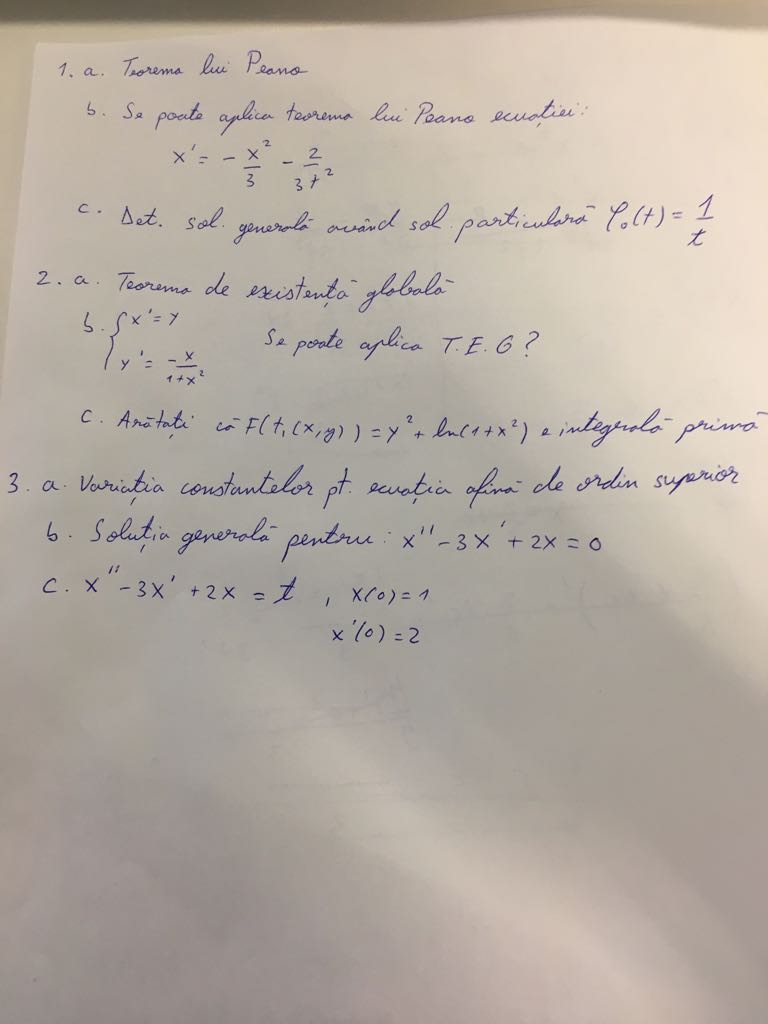 1. a. Teorema lui Peano
b. Se poate aplica teorema lui Peano ecuației:
x' = - x²/3 - 2/3t²
c. Det. sol. generală având sol. particulară φ₀(t) = 1/t
2. a. Teorema de existență globală
b. { x' = y
y' = -x/1+x² Se poate aplica T.E.G?
c. Arătați că F(t,(x,y)) = y² + ln(1+x²) e integrală primă
3. a. Variația constantelor pt. ecuația afină de ordin superior
b. Soluția generală pentru: x'' - 3x' + 2x = 0
c. x'' - 3x' + 2x = t , x(0) = 1
x'(0) = 2